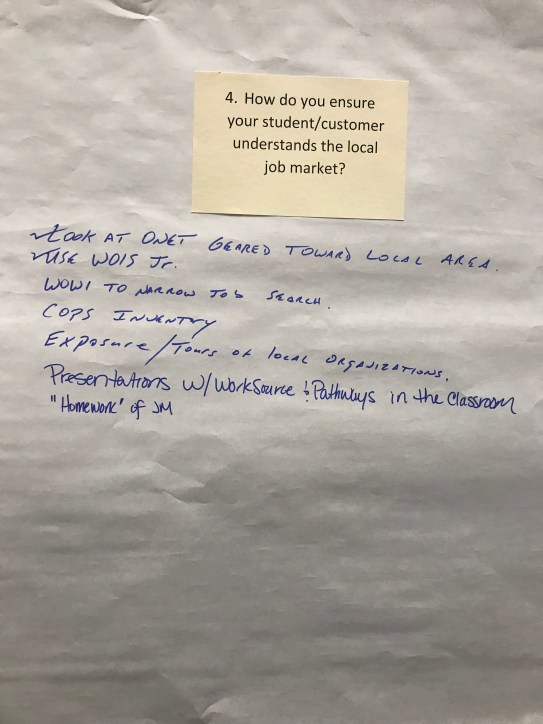 4. How do you ensure
your student/customer
understands the local
job market?
✓Look AT ONET GEARED TOWARD LOCAL AREA.
✓USE WOIS Jr.
WOWI TO NARROW JOB SEARCH.
COPS INVENTORY
Exposure/Tours of local ORGANIZATIONS.
Presentations w/WorkSource & Pathways in the Classroom
"Homework" of JM